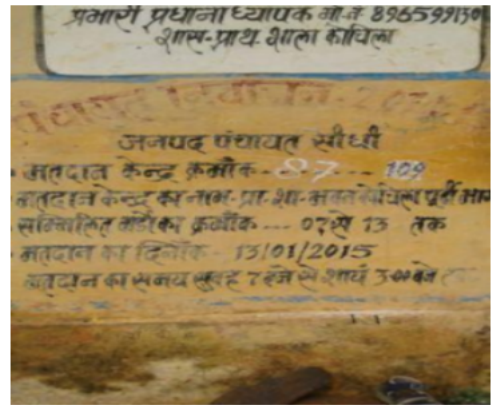 प्रभारी प्रधानाध्यापक मो.न. 8965991501
शास-प्राथ-शाला कोचिला
पंचायत निर्वाचन-
जनपद पंचायत सीधी
मतदान केन्द्र क्रमांक-- 87 --- 109
मतदान केन्द्र का नाम-प्रा-शा-भवन कोचिला पूर्वी भाग
सम्मिलित वार्डो का क्रमांक --- 07 से 13 तक
मतदान का दिनांक - 13/01/2015
मतदान का समय सुबह 7 बजे से शायं 3-00 बजे तक